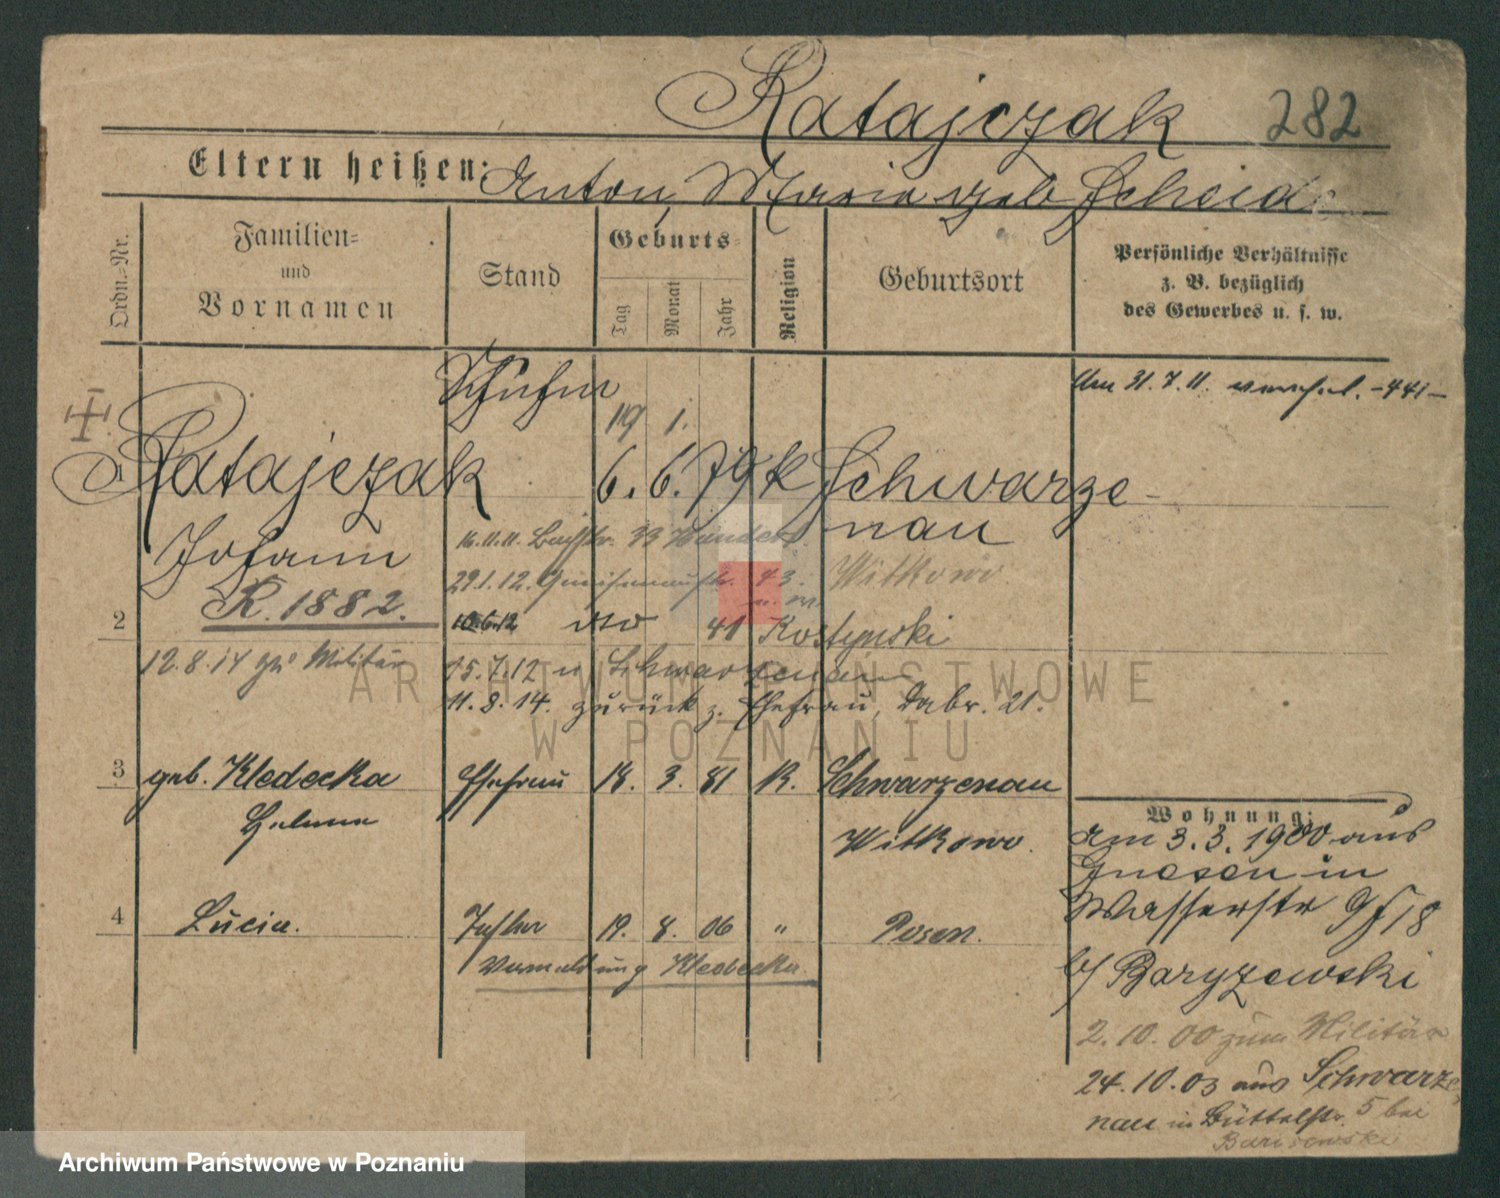 Ratajczak 282
Eltern heißen: Anton, Maria geb Scheid
Ordn.=Nr.
Familien=
und
Vornamen
Stand
Geburts=
Tag
Monat
Jahr
Religion
Geburtsort
Persönliche Verhältnisse
z. B. bezüglich
des Gewerbes u. s. w.
Am 31.7.11. -441-
19 1.
Ratajczak 6. 6. 79 k Schwarze-
nau
Johann
16.11.11. 33
29.1.12. Gneisenaustr. 43. Witkowo
R. 1882.
2 10.6.12 dto 41 Kostynski
12.8.14 Militär 15.7.12 n Schwarzenau
11.8.14. zurück z. Ehefrau, Dabr. 21.
3 geb. Kledecka Ehefrau 18. 3. 81 K. Schwarzenau
Helene Witkowo.
4 Lucia. Tochter 19. 8. 06 " Posen.
Kledecka
Wohnung:
am 3.3.1900 aus
Gnesen in
Wasserstr 18
b/ Baryzewski
2.10.00 zum Militär
24.10.03 aus Schwarze
nau in Büttelstr. 5 bei
Barisewski
ARCHIWUM PAŃSTWOWE
W POZNANIU
Archiwum Państwowe w Poznaniu